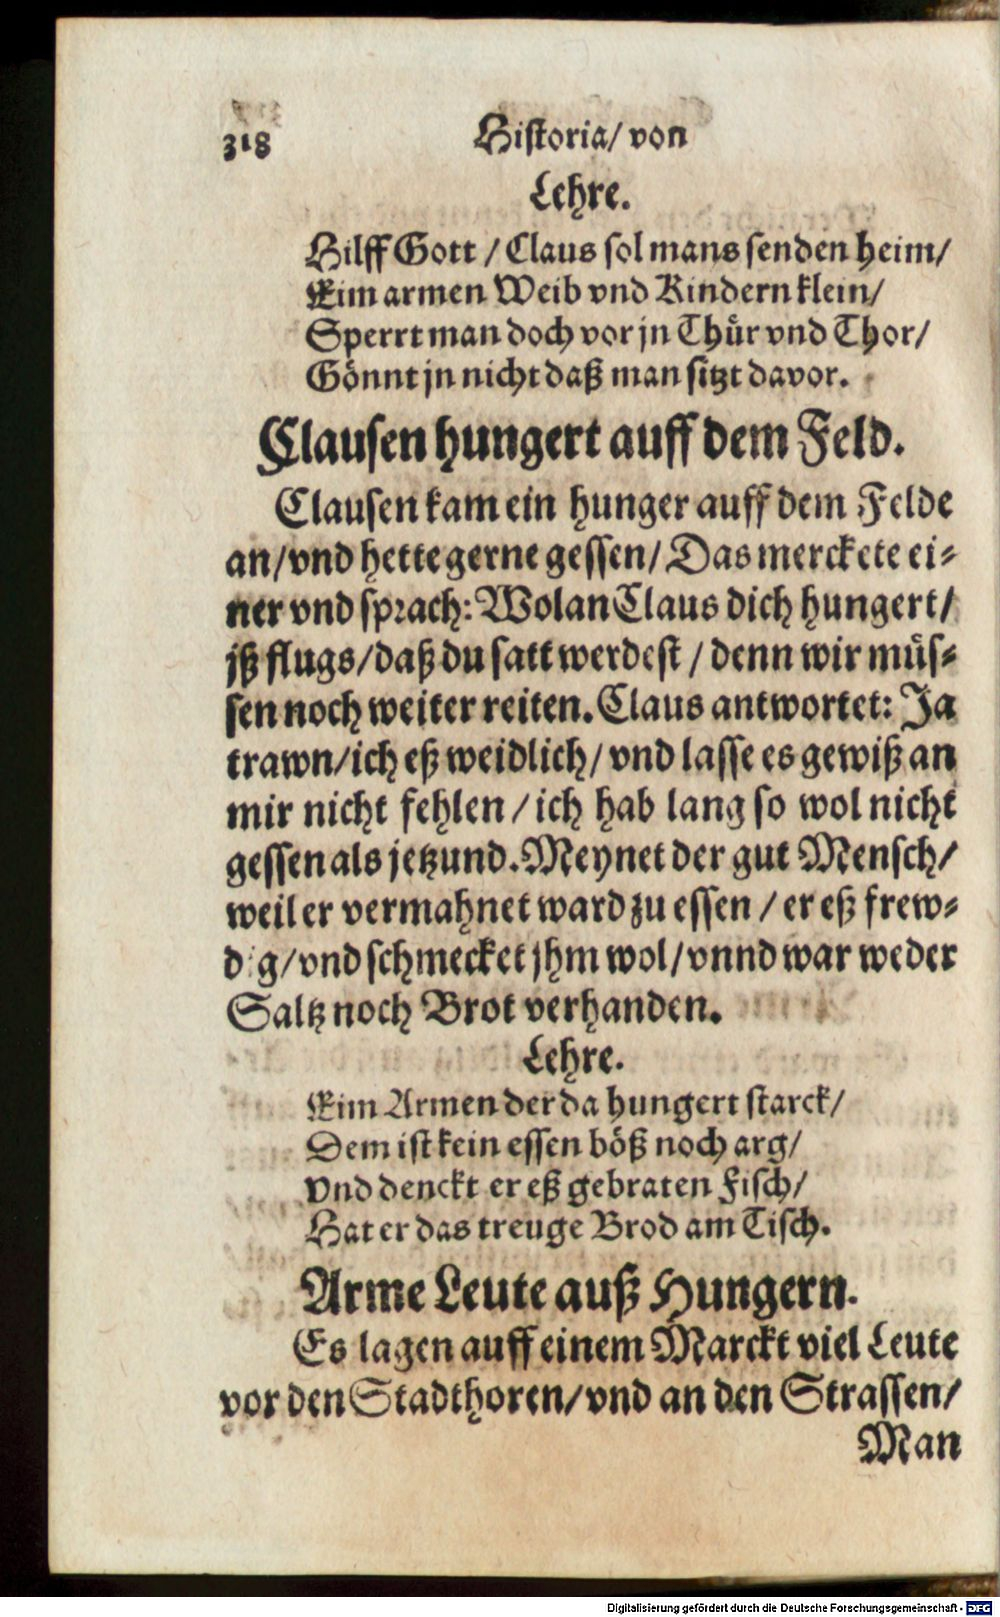 318 Historia/ von
Lehre.
Hilff Gott / Claus sol mans senden heim/
Eim armen Weib vnd Kindern klein/
Sperrt man doch vor jn Thür vnd Thor/
Gönnt jn nicht daß man sitzt davor.
Clausen hungert auff dem Feld.
Clausen kam ein hunger auff dem Felde
an/ vnd hette gerne gessen/ Das merckete ei-
ner vnd sprach: Wolan Claus dich hungert/
jß flugs/ daß du satt werdest / denn wir müs-
sen noch weiter reiten. Claus antwortet: Ja
trawn/ ich eß weidlich/ vnd lasse es gewiß an
mir nicht fehlen / ich hab lang so wol nicht
gessen als jetzund. Meynet der gut Mensch/
weil er vermahnet ward zu essen / er eß frew-
dig/ vnd schmecket jhm wol/ vnnd war weder
Saltz noch Brot verhanden.
Lehre.
Eim Armen der da hungert starck/
Dem ist kein essen böß noch arg/
Vnd denckt er eß gebraten Fisch/
Hat er das treuge Brod am Tisch.
Arme Leute auß Hungern.
Es lagen auff einem Marckt viel Leute
vor den Stadthoren/ vnd an den Strassen/
Man
Digitalisierung gefördert durch die Deutsche Forschungsgemeinschaft - DFG